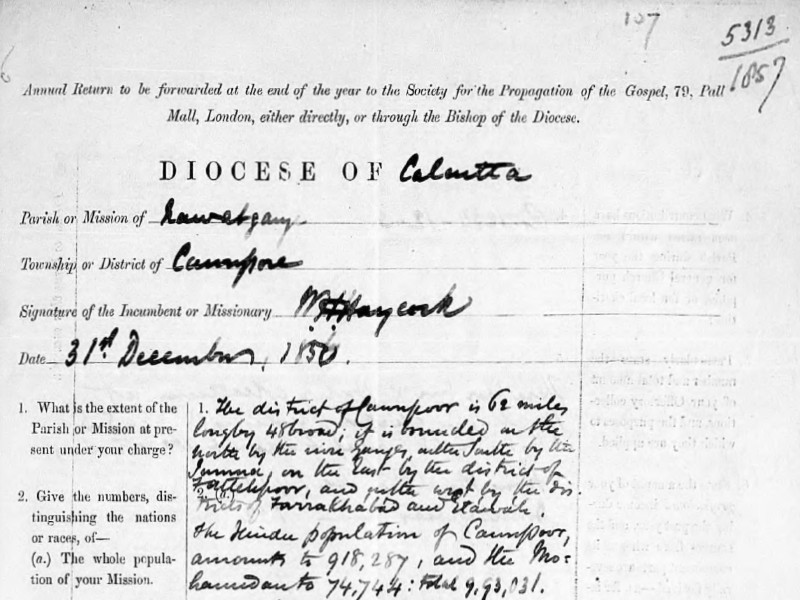 107
5313
1857
Annual Return to be forwarded at the end of the year to the Society for the Propagation of the Gospel, 79, Pall
Mall, London, either directly, or through the Bishop of the Diocese.
DIOCESE OF Calcutta
Parish or Mission of Nawabgunj
Township or District of Cawnpore
Signature of the Incumbent or Missionary W H Haycock
Date 31st. December, 1856.
1. What is the extent of the
Parish or Mission at pre-
sent under your charge?
2. Give the numbers, dis-
tinguishing the nations
or races, of—
(a.) The whole popula-
tion of your Mission.
1. The district of Cawnpoor is 62 miles
long by 48 broad; it is bounded on the
north by the river Ganges, on the South by the
Jumna, on the East by the district of
Fattehpoor, and on the west by the dis
tricts of Farrakhabad and Etawah.
2. (a.)
The Hindu population of Cawnpoor,
amounts to 918,287, and the Mo=
hamedan to 74,744: total 9,93,031.